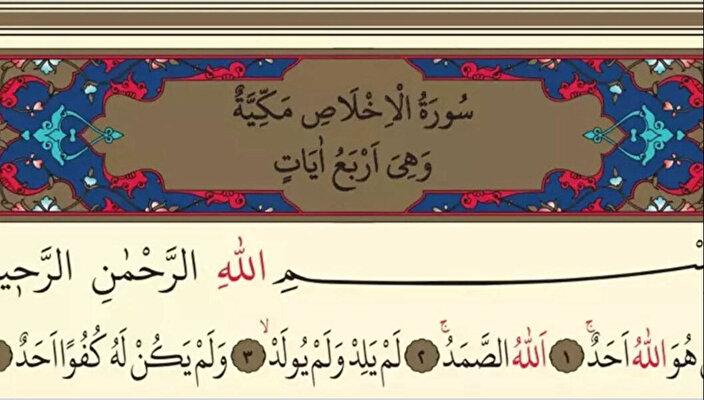 سُورَةُ الْاِخْلَاصِ مَكِّيَّةٌ
وَهِىَ اَرْبَعُ اٰيَاتٍ
اللّٰهِ الرَّحْمٰنِ
هُوَ اللّٰهُ اَحَدٌۚ ١ اَللّٰهُ الصَّمَدُۚ ٢ لَمْ يَلِدْ وَلَمْ يُولَدْۙ ٣ وَلَمْ يَكُنْ لَهُ كُفُوًا اَحَدٌ